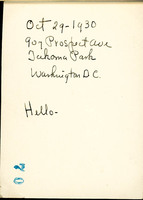 Oct 29-1930
907 Prospect Ave
Takoma Park
Washington D.C.
Hello-